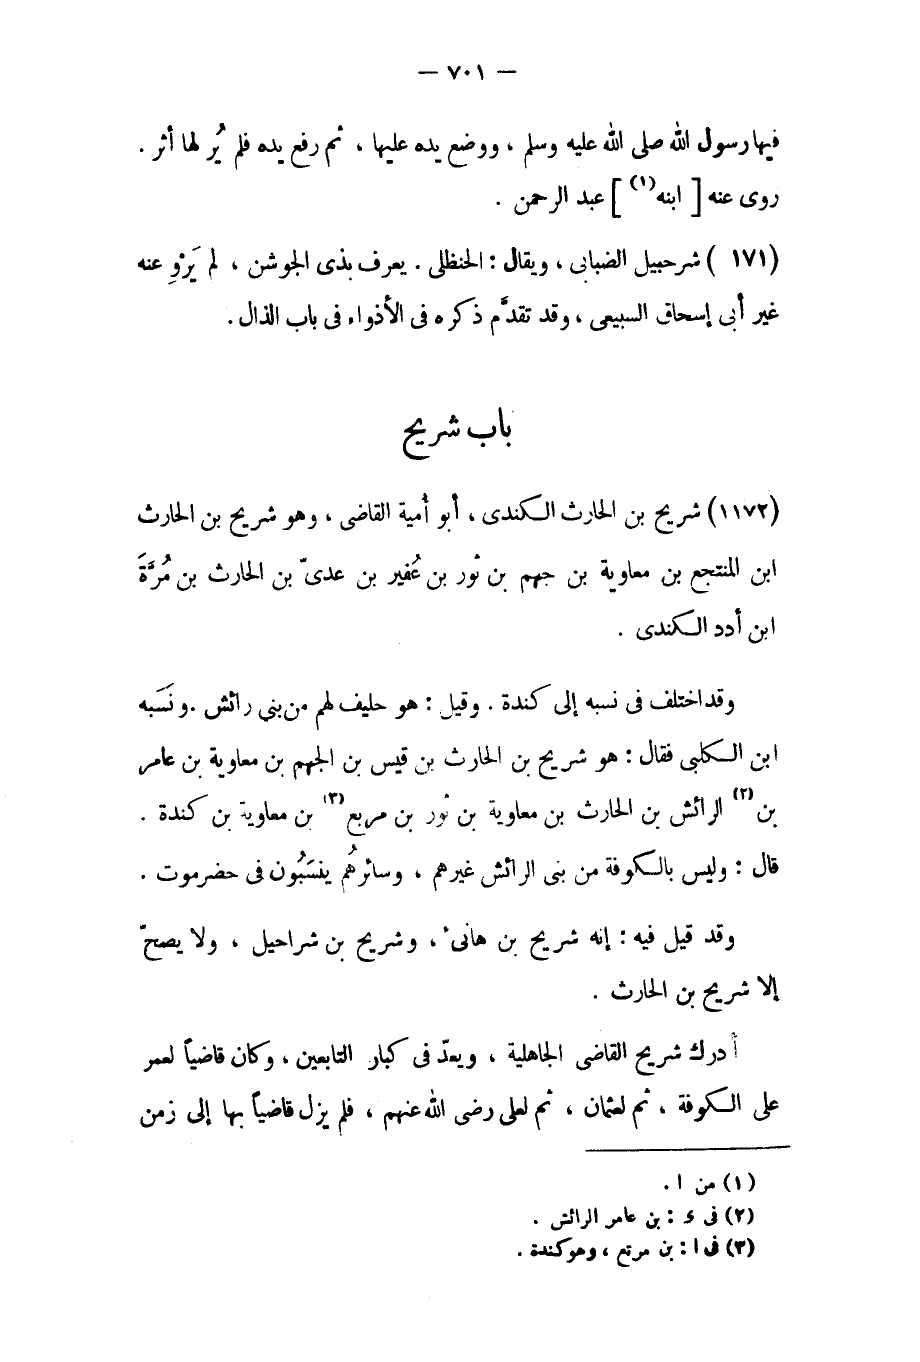 — ٧٠١ —
فيها رسول الله صلى الله عليه وسلم ، ووضع يده عليها ، ثم رفع يده فلم يُر لها أثر .
روى عنه [ ابنه(١) ] عبد الرحمن .
(١٧١ ) شرحبيل الضبابى ، ويقال : الحنظلى . يعرف بذى الجوشن ، لم يَرْوِ عنه
غير أبى إسحاق السبيعى ، وقد تقدَّم ذكره فى الأذواء فى باب الذال .
باب شريح
(١١٧٢) شريح بن الحارث الكندى ، أبو أُمية القاضى ، وهو شريح بن الحارث
ابن المنتجع بن معاوية بن جهم بن ثور بن عُفير بن عدىّ بن الحارث بن مُرَّةَ
ابن أدد الكندى .
وقد اختلف فى نسبه إلى كندة . وقيل : هو حليف لهم من بني رائش . ونَسَبه
ابن الكلبى فقال : هو شريح بن الحارث بن قيس بن الجهم بن معاوية بن عامر
بن(٢) الرائش بن الحارث بن معاوية بن ثور بن مربع(٣) بن معاوية بن كندة .
قال : وليس بالكوفة من بنى الرائش غيرهم ، وسائرهُم ينسَبُون فى حضرموت .
وقد قيل فيه : إنه شريح بن هانىء ، وشريح بن شراحيل ، ولا يصحّ
إلا شريح بن الحارث .
أدرك شريح القاضى الجاهلية ، ويعدّ فى كبار التابعين ، وكان قاضياً لعمر
على الكوفة ، ثم لعثمان ، ثم لعلى رضى الله عنهم ، فلم يزل قاضياً بها إلى زمن
(١) من ا .
(٢) فى ى : بن عامر الرائش .
(٣) فى ا : بن مرتع ، وهو كندة .